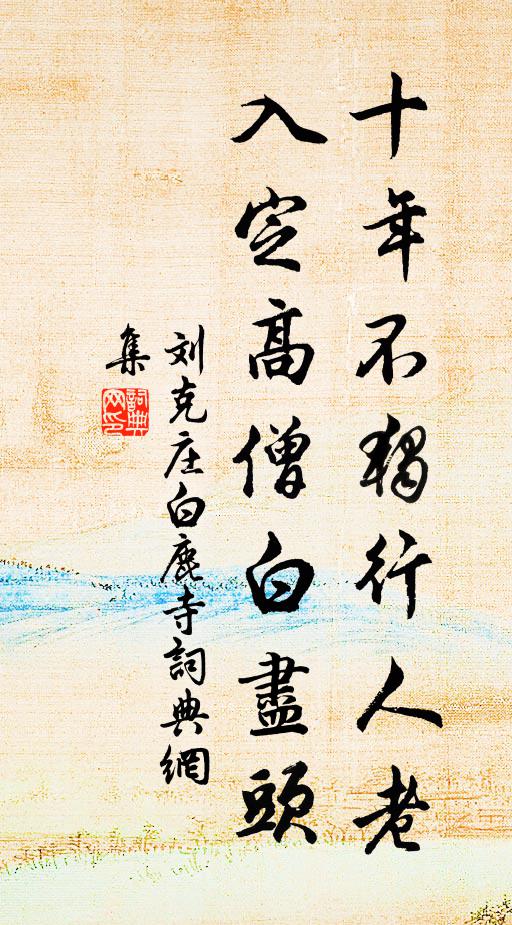 十年不独行人老
入定高僧白盡頭
刘克庄白鹿寺詞典網
集
詞典
网印